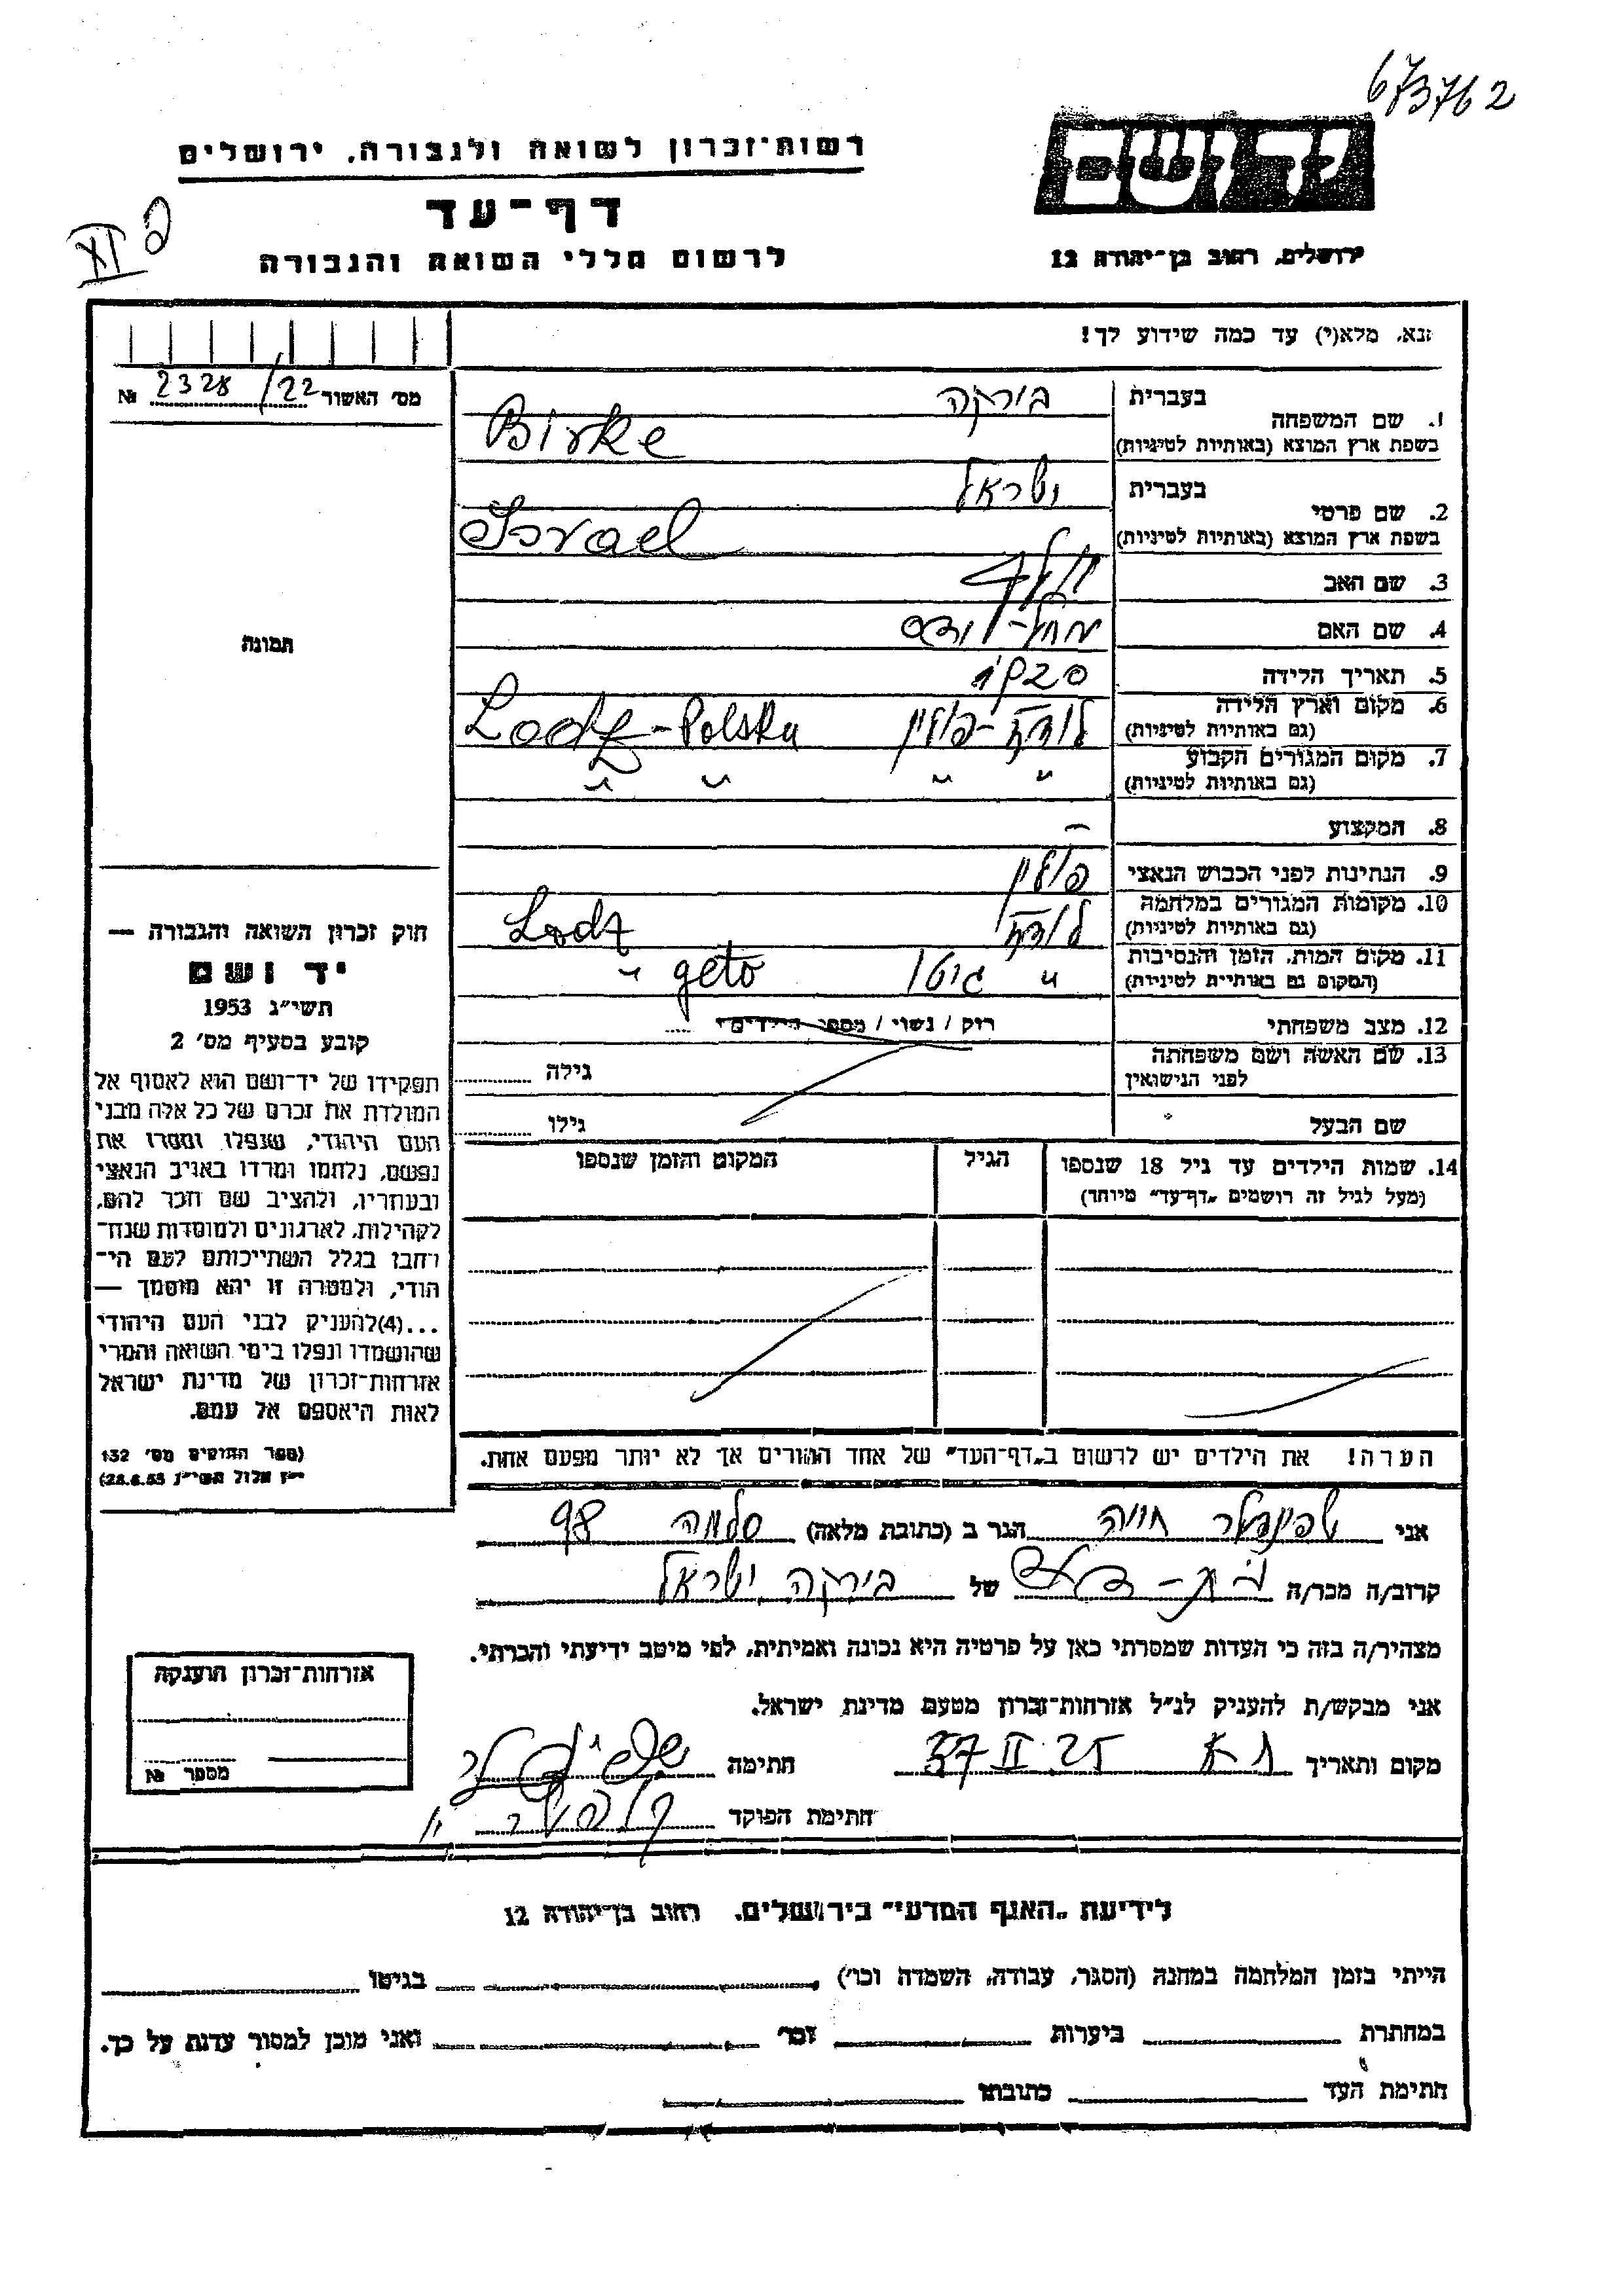 673762
יד ושם
רשות־זכרון לשואה ולגבורה, ירושלים
דף־עד
לרשום חללי השואה והגבורה
ירושלים, רחוב בן־יהודה 12
נא, מלא(י) עד כמה שידוע לך!
מס׳ האשור 2328/22 №
1. שם המשפחה בעברית בירקה
בשפת ארץ המוצא (באותיות לטיניות) Birke
2. שם פרטי בעברית ישראל
בשפת ארץ המוצא (באותיות לטיניות) Israel
3. שם האב
4. שם האם
5. תאריך הלידה 1920
6. מקום וארץ הלידה (גם באותיות לטיניות) לודז׳ - פולין Lodz - Polska
7. מקום המגורים הקבוע (גם באותיות לטיניות) " " " "
8. המקצוע —
9. הנתינות לפני הכבוש הנאצי פולין
10. מקומות המגורים במלחמה (גם באותיות לטיניות) לודז׳ Lodz
11. מקום המות, הזמן והנסיבות (המקום גם באותיות לטיניות) " גיטו geto "
12. מצב משפחתי רווק / נשוי / מספר הילדים
13. שם האשה ושם משפחתה לפני הנישואין גילה
שם הבעל גילו
14. שמות הילדים עד גיל 18 שנספו הגיל המקום והזמן שנספו
(מעל לגיל זה רושמים „דף־עד” מיוחד)
תמונה
חוק זכרון השואה והגבורה —
יד ושם
תשי״ג 1953
קובע בסעיף מס׳ 2
תפקידו של יד־ושם הוא לאסוף אל
המולדת את זכרם של כל אלה מבני
העם היהודי, שנפלו ומסרו את
נפשם, נלחמו ומרדו באויב הנאצי
ובעוזריו, ולהציב שם וזכר להם,
לקהילות, לארגונים ולמוסדות שנח־
רבו בגלל השתייכותם לעם הי־
הודי, ולמטרה זו יהא מוסמך —
...(4)להעניק לבני העם היהודי
שהושמדו ונפלו בימי השואה והמרי
אזרחות־זכרון של מדינת ישראל
לאות היאספם אל עמם.
(ספר החוקים מס׳ 132
י״ז אלול תשי״ג 28.8.53)
הערה! את הילדים יש לרשום ב„דף־העד” של אחד ההורים אך לא יותר מפעם אחת.
אני שפינדלר חוה הגר ב (כתובת מלאה) סלמה 98
קרוב/ה מכר/ה בת-דוד של בירקה ישראל
מצהיר/ה בזה כי העדות שמסרתי כאן על פרטיה היא נכונה ואמיתית, לפי מיטב ידיעתי והכרתי.
אני מבקש/ת להעניק לנ״ל אזרחות־זכרון מטעם מדינת ישראל.
מקום ותאריך ת א 25 II 57 חתימה
חתימת הפוקד
אזרחות־זכרון הוענקה
מספר №
לידיעת „האגף המדעי” בירושלים, רחוב בן־יהודה 12
הייתי בזמן המלחמה במחנה (הסגר, עבודה, השמדה וכו׳) בגיטו
במחתרת ביערות וכו׳ ואני מוכן למסור עדות על כך.
חתימת העד כתובתו